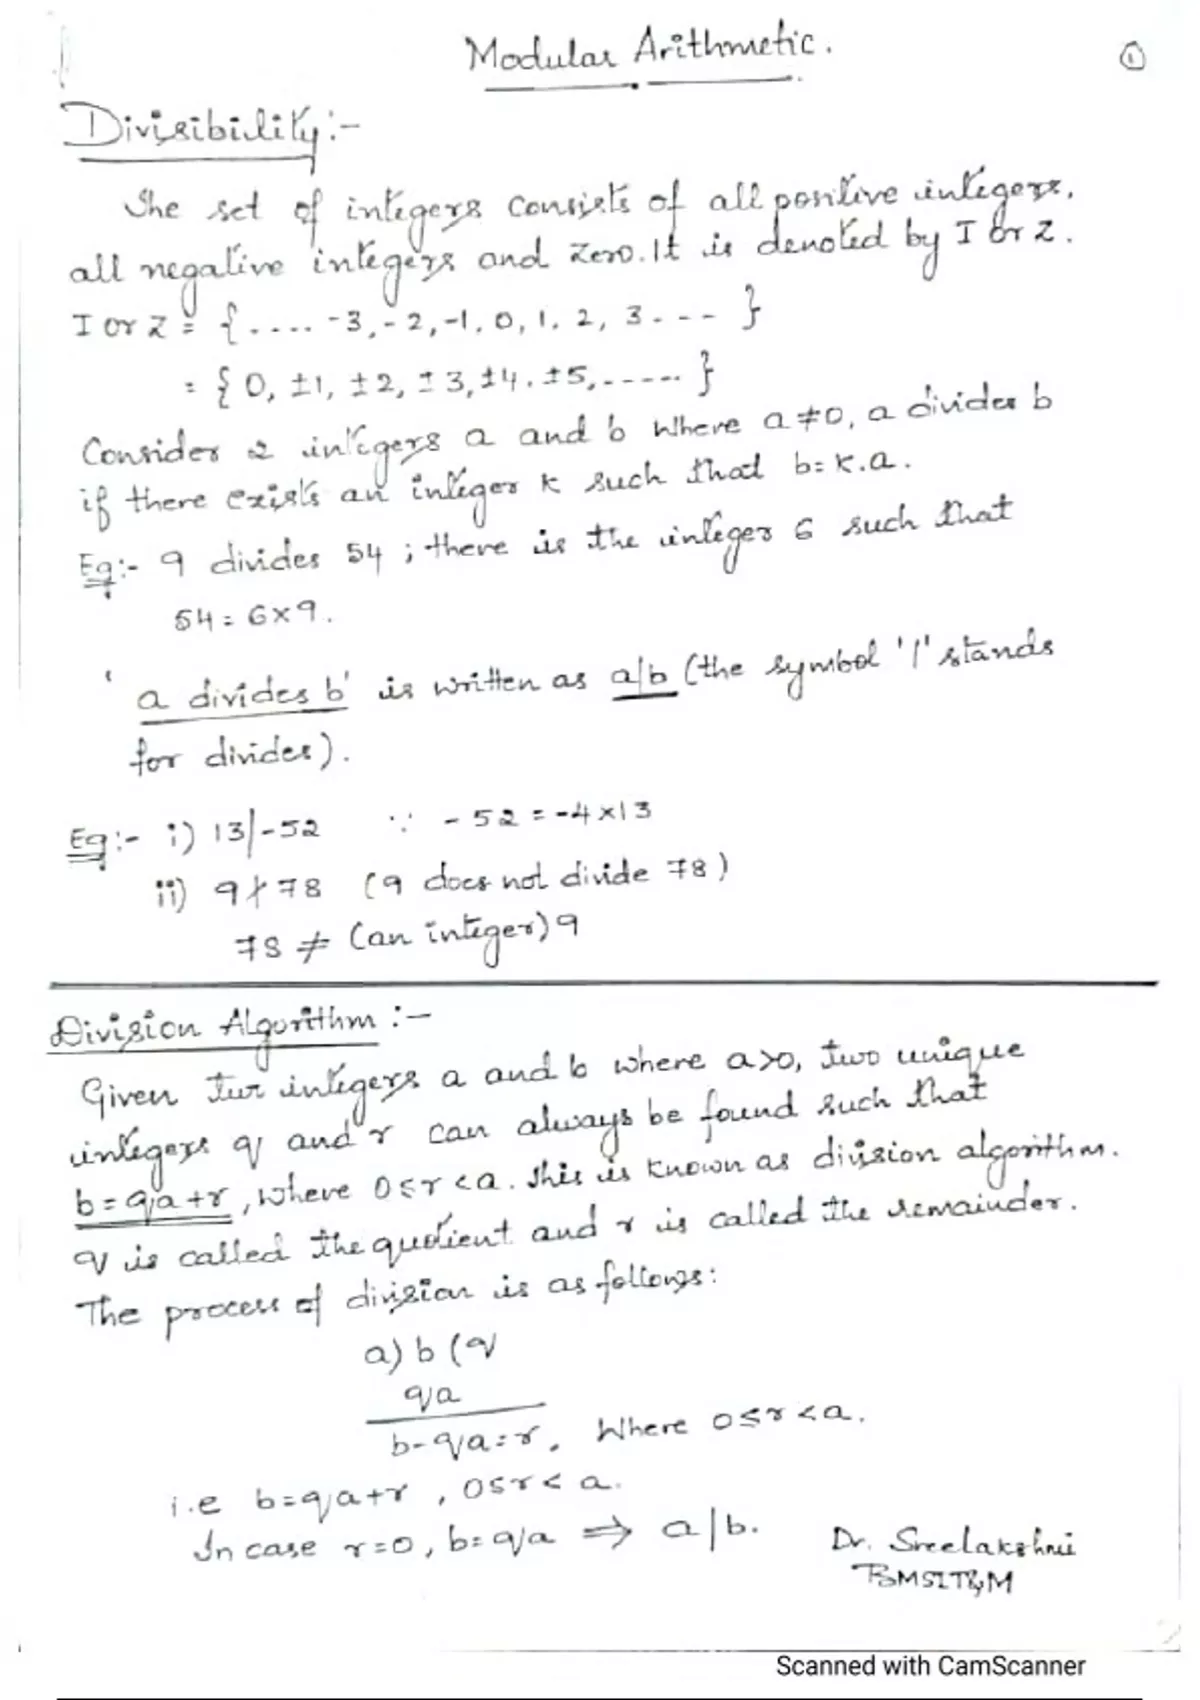 Modular Arithmetic.
①
Divisibility:-
The set of integers consists of all positive integers,
all negative integers and zero. It is denoted by I or Z.
I or Z = {.... -3,-2,-1, 0, 1, 2, 3 --- }
= { 0, ±1, ±2, ±3, ±4, ±5, ----- }
Consider 2 integers a and b where a≠0, a divides b
if there exists an integer k such that b=k.a.
Eg:- 9 divides 54 ; there is the integer 6 such that
54 = 6×9.
'a divides b' is written as a|b (the symbol '|' stands
for divides).
Eg:- i) 13|-52 ∵ -52 = -4×13
ii) 9∤78 (9 does not divide 78)
78 ≠ (an integer) 9
Division Algorithm :-
Given two integers a and b where a>0, two unique
integers q and r can always be found such that
b = qa+r, where 0≤r<a. This is known as division algorithm.
q is called the quotient and r is called the remainder.
The process of division is as follows:
a) b (q
qa
b-qa=r, Where 0≤r<a.
i.e b=qa+r , 0≤r< a.
In case r=0, b=qa ⇒ a|b.
Dr. Sreelakshmi
BMSIT&M
Scanned with CamScanner